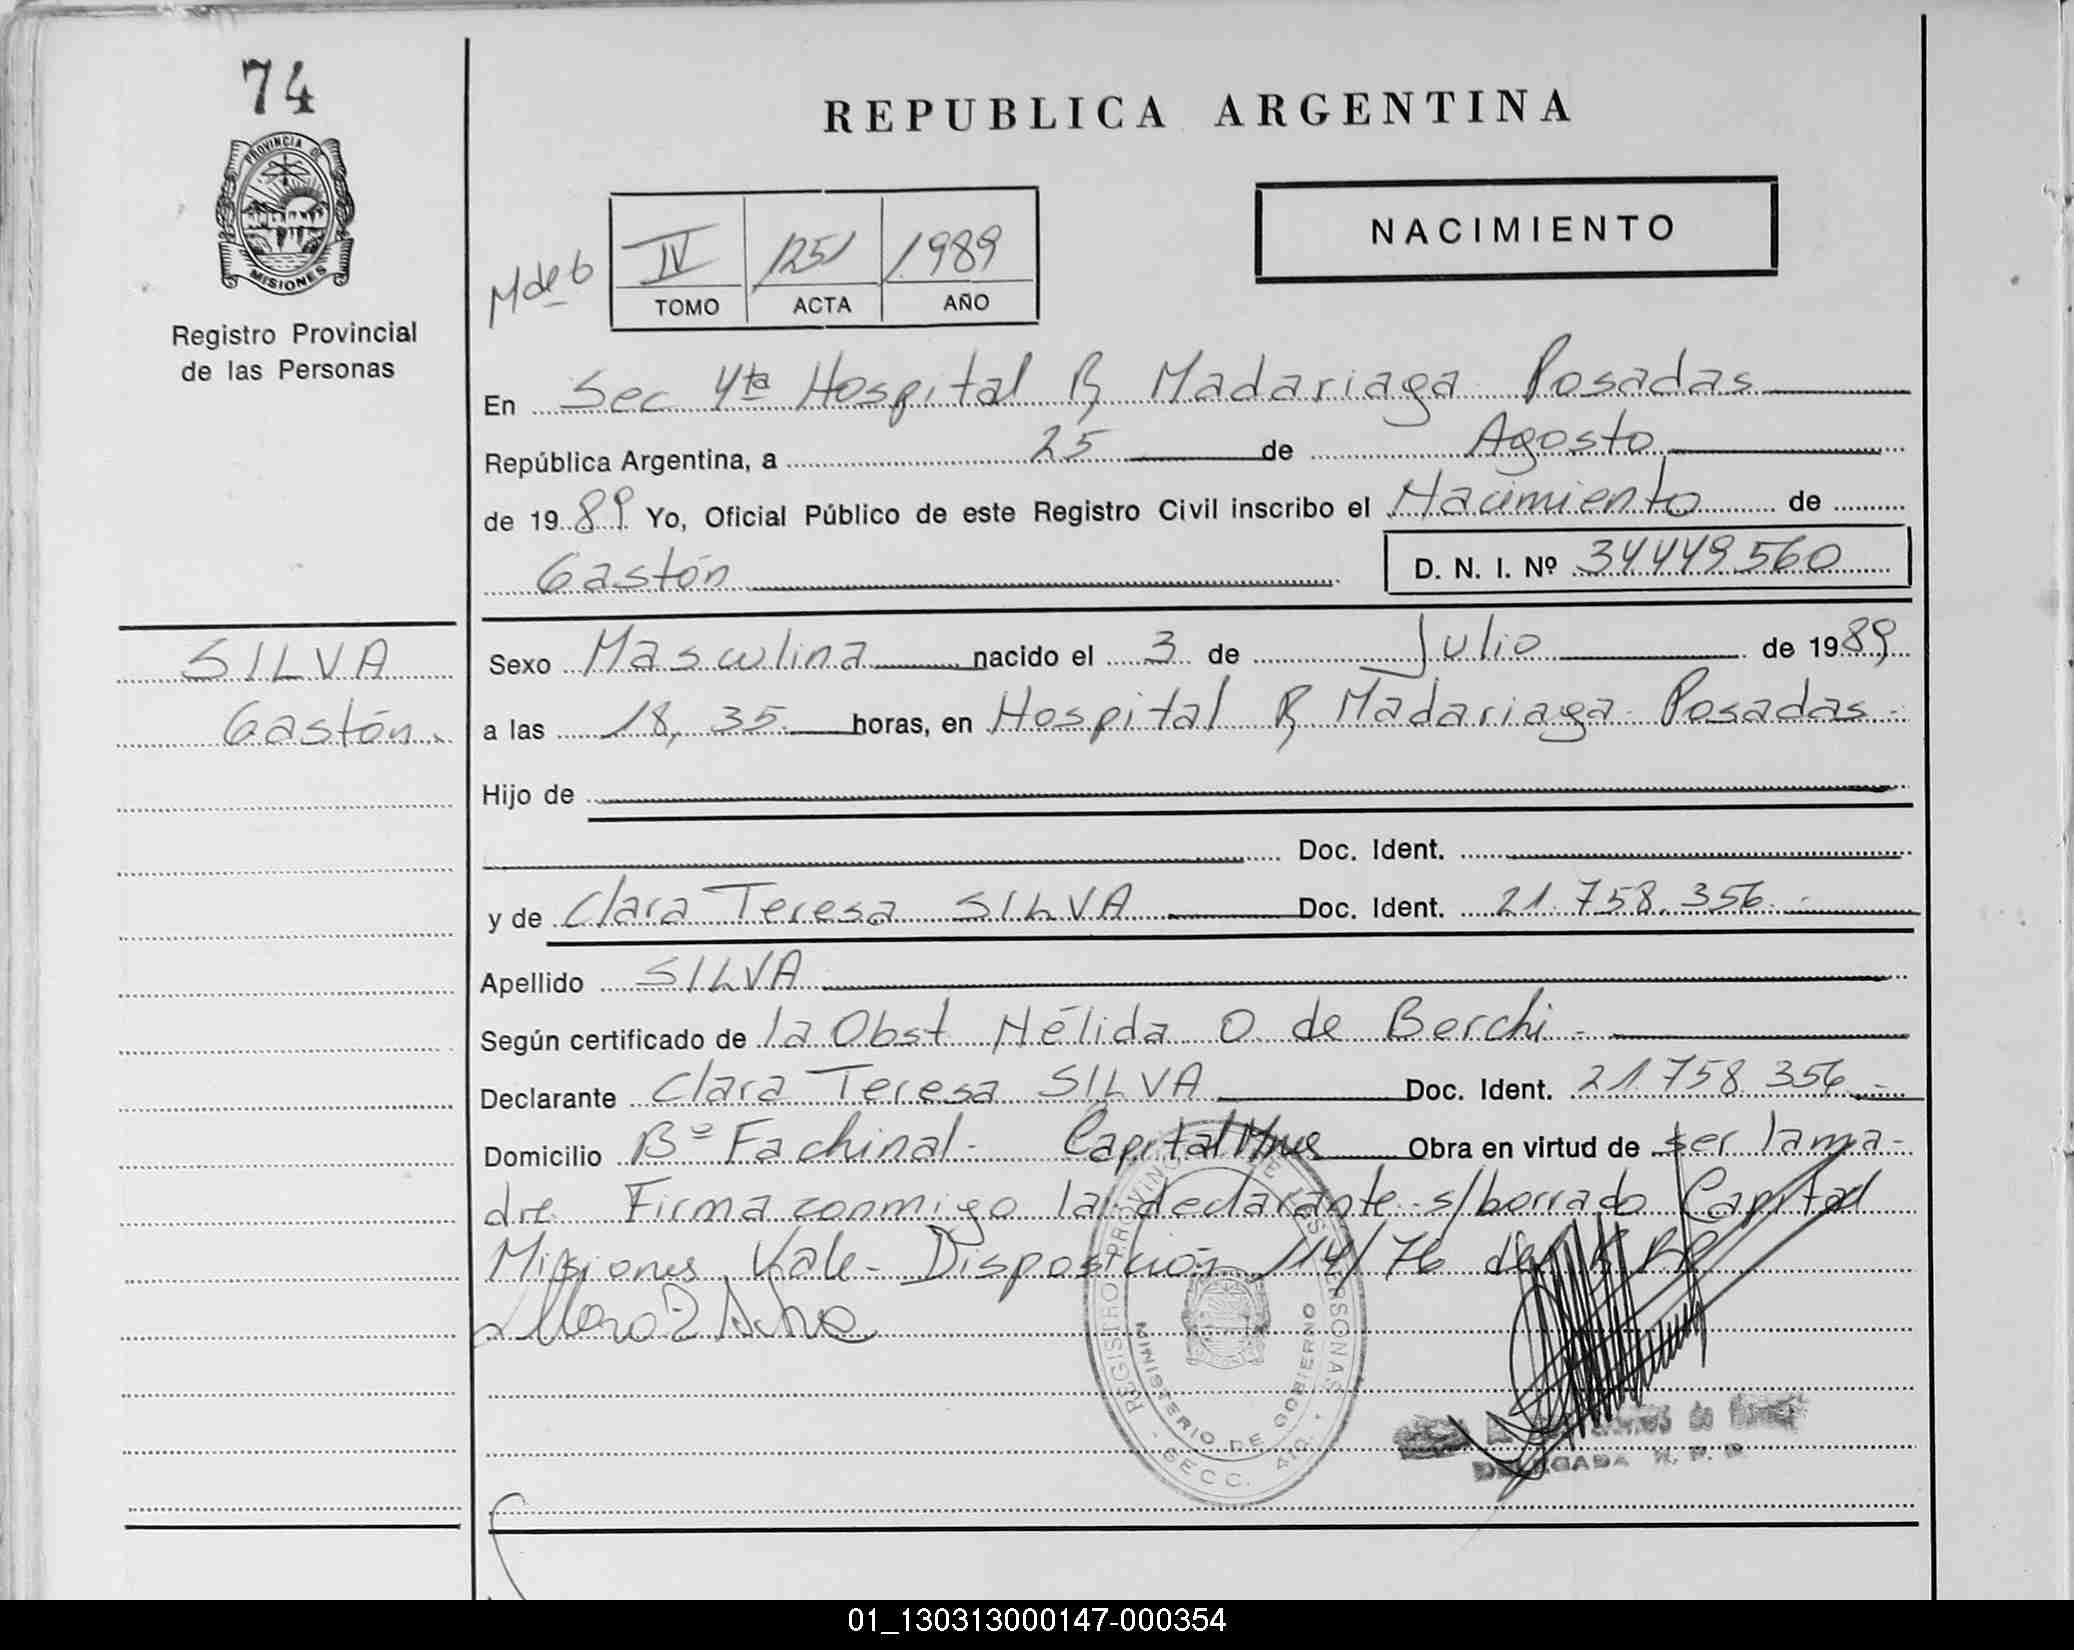 74
PROVINCIA DE
MISIONES
Registro Provincial
de las Personas
SILVA
Gastón.
REPUBLICA ARGENTINA
NACIMIENTO
IV 1251 1989
TOMO ACTA AÑO
En Sec 4ta Hospital R, Madariaga Posadas
República Argentina, a 25 de Agosto
de 1989 Yo, Oficial Público de este Registro Civil inscribo el Nacimiento de
Gastón D. N. I. Nº 34449560
Sexo Masculina nacido el 3 de Julio de 1989
a las 18, 35. horas, en Hospital R, Madariaga Posadas.
Hijo de
Doc. Ident.
y de Clara Teresa SILVA Doc. Ident. 21.758.356.-
Apellido SILVA
Según certificado de la Obst Nélida O. de Berchi.-
Declarante Clara Teresa SILVA Doc. Ident. 21.758.356.-
Domicilio Bº Fachinal - Capital Mnes Obra en virtud de ser la ma-
dre Firma conmigo la declarante - s/borrado Capital
Misiones Vale - Disposición 114/76 del
REGISTRO PROVINCIAL DE LAS PERSONAS
MINISTERIO DE GOBIERNO
SECC. 4TA.
DELEGADA R. P. P.
01_130313000147-000354